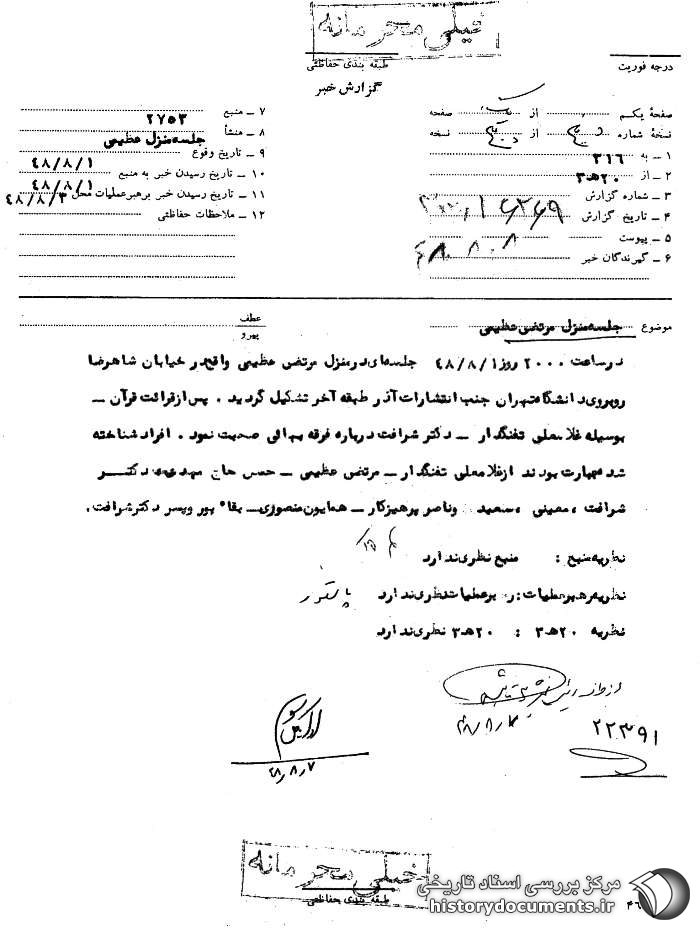 خیلی محرمانه
طبقه بندی حفاظتی
گزارش خبر
درجه فوریت
صفحهٔ یکم از یک صفحه
نسخهٔ شماره از نسخه
۱ – به ۳۱۶
۲ – از ۲۰ﻫ۳
۳ – شماره گزارش
۴ – تاریخ گزارش
۵ – پیوست
۶ – گیرندگان خبر
۷ – منبع ۲۷۵۳
۸ – منشأ جلسه منزل عظیمی
۹ – تاریخ وقوع ۴۸/۸/۱
۱۰ – تاریخ رسیدن خبر به منبع ۴۸/۸/۱
۱۱ – تاریخ رسیدن خبر برهبرعملیات محل ۴۸/۸/۳
۱۲ – ملاحظات حفاظتی
موضوع جلسه منزل مرتضی عظیمی
عطف
پیرو
در ساعت ۲۰۰۰ روز ۴۸/۸/۱ جلسه‌ای در منزل مرتضی عظیمی واقع در خیابان شاهرضا
روبروی دانشگاه تهران جنب انتشارات آذر طبقه آخر تشکیل گردید . پس از قرائت قرآن –
بوسیله غلامعلی تفنگدار – دکتر شرافت درباره فرقه بهائی صحبت نمود . افراد شناخته
شده عبارت بودند از غلامعلی تفنگدار – مرتضی عظیمی – حسن حاج مهدی، دکتر
شرافت ، معینی ، سعید وناصر پرهیزکار – همایون منصوری – بقا پور وپسر دکتر شرافت.
نظریه منبع : منبع نظری ندارد
نظریه رهبر عملیات : رهبر عملیات نظری ندارد
نظریه ۲۰ﻫ۳ : ۲۰ﻫ۳ نظری ندارد
۲۲۳۹۱
۴۸/۸/۷
خیلی محرمانه
طبقه بندی حفاظتی
مرکز بررسی اسناد تاریخی
historydocuments.ir